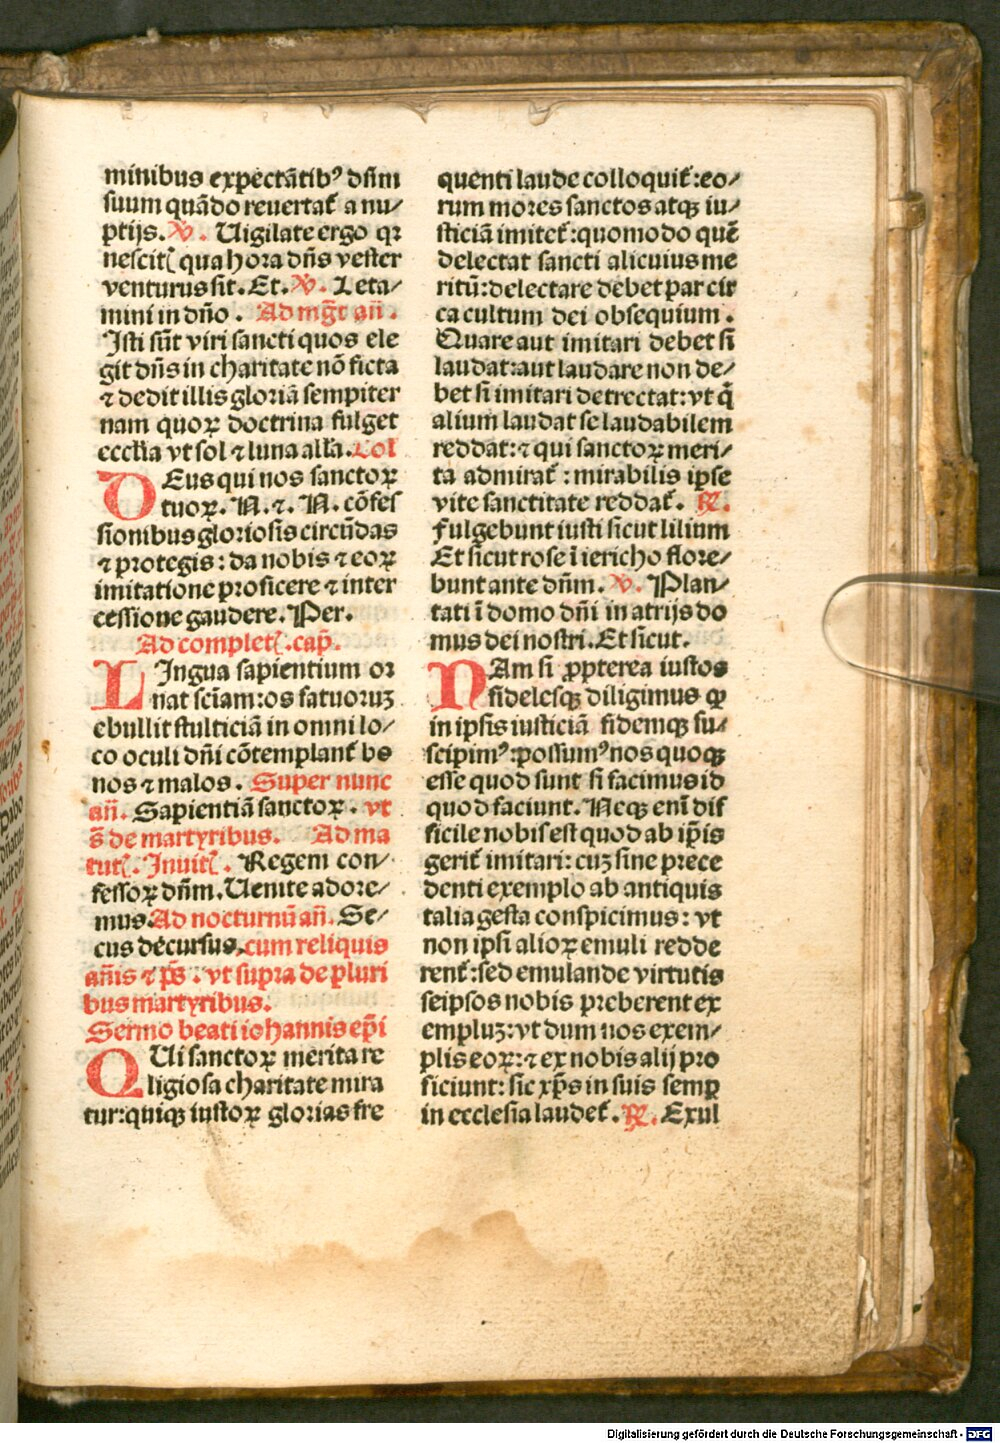 minibus expectātibꝰ dn̄m
suum quādo reuertat᷑ a nu⸗
ptijs. ℣. Uigilate ergo qꝛ
nescitꝭ qua hora dn̄s vester
venturus sit. Et. ℣. Leta⸗
mini in dn̄o. Ad mg̅t an̄.
Isti sūt viri sancti quos ele
git dn̄s in charitate nō ficta
⁊ dedit illis gloriā sempiter
nam quoꝝ doctrina fulget
eccl̄ia vt sol ⁊ luna all̄a. Col
DEus qui nos sanctoꝝ
tuoꝝ. N. ⁊. N. cōfes
sionibus gloriosis circūdas
⁊ protegis: da nobis ⁊ eoꝝ
imitatione proficere ⁊ inter
cessione gaudere. Per.
Ad completꝭ. cap̄.
LIngua sapientium or
nat sc̄iam: os fatuoruꝫ
ebullit stulticiā in omni lo⸗
co oculi dn̄i cōtemplant᷑ bo
nos ⁊ malos. Super nunc
an̄. Sapientiā sanctoꝝ. vt
s̄ de martyribus. Ad ma
tutꝭ. Inuitꝭ. Regem con⸗
fessoꝝ dn̄m. Uenite adore⸗
mus. Ad nocturnū an̄. Se⸗
cus decursus, cum reliquis
an̄is ⁊ p̄s. vt supra de pluri
bus martyribus.
Sermo beati iohannis ep̄i
QUi sanctoꝝ merita re
ligiosa charitate mira
tur: quiqꝫ iustoꝝ glorias fre
quenti laude colloquit᷑: eo⸗
rum mores sanctos atqꝫ iu⸗
sticiā imitet᷑: quomodo quē
delectat sancti alicuius me
ritū: delectare debet par cir
ca cultum dei obsequium.
Quare aut imitari debet si
laudat: aut laudare non de⸗
bet si imitari detrectat: vt q̄
alium laudat se laudabilem
reddat: ⁊ qui sanctoꝝ meri⸗
ta admirat᷑: mirabilis ipse
vite sanctitate reddat᷑. ℟.
Fulgebunt iusti sicut lilium
Et sicut rose ī iericho flore⸗
bunt ante dn̄m. ℣. Plan⸗
tati ī domo dn̄i in atrijs do
mus dei nostri. Et sicut.
NAm si ꝓpterea iustos
fidelesqꝫ diligimus ꝙ
in ipsis iusticiā fidemqꝫ su⸗
scipimꝰ: possumꝰ nos quoqꝫ
esse quod sunt si facimus id
quod faciunt. Neqꝫ eni᷑ dif
ficile nobis est quod ab ip̄is
gerit᷑ imitari: cuꝫ sine prece
denti exemplo ab antiquis
talia gesta conspicimus: vt
non ipsi alioꝝ emuli redde
rent᷑: sed emulande virtutis
seipsos nobis preberent ex
empluꝫ: vt dum nos exem⸗
plis eoꝝ: ⁊ ex nobis alij pro
ficiunt: sic xp̄s in suis semꝑ
in ecclesia laudet᷑. ℟. Exul
Digitalisierung gefördert durch die Deutsche Forschungsgemeinschaft - DFG